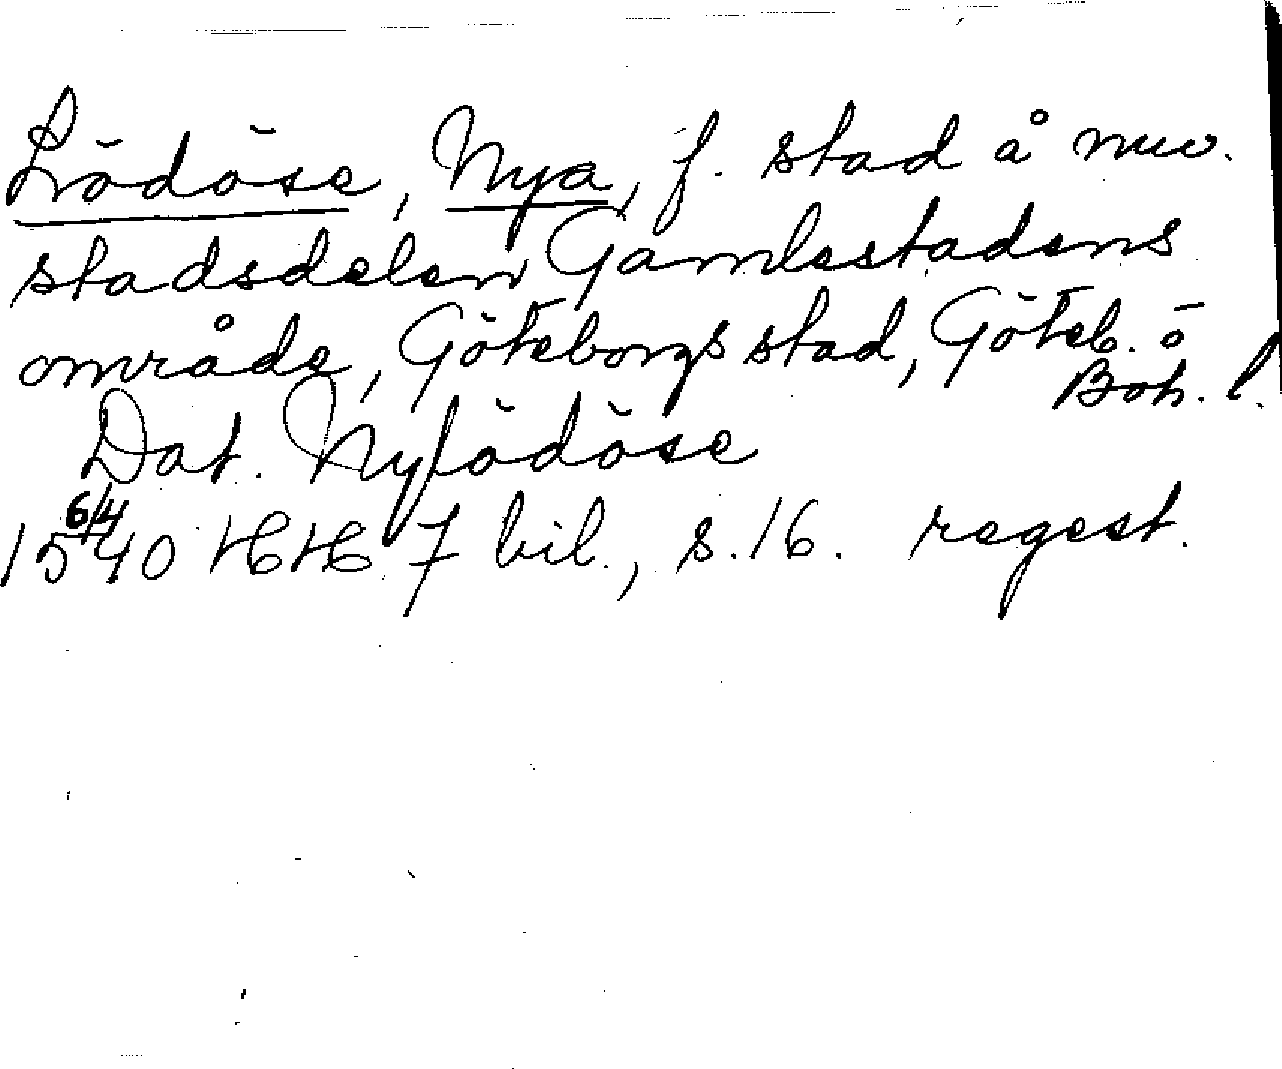 Lödöse, Nya, f. stad å nuv.
stadsdelen Gamlestadens
område, Göteborgs stad, Göteb. o
Boh. l.
Dat. Nylödöse
6/4
1540 HH 7 bil., s. 16. regest.